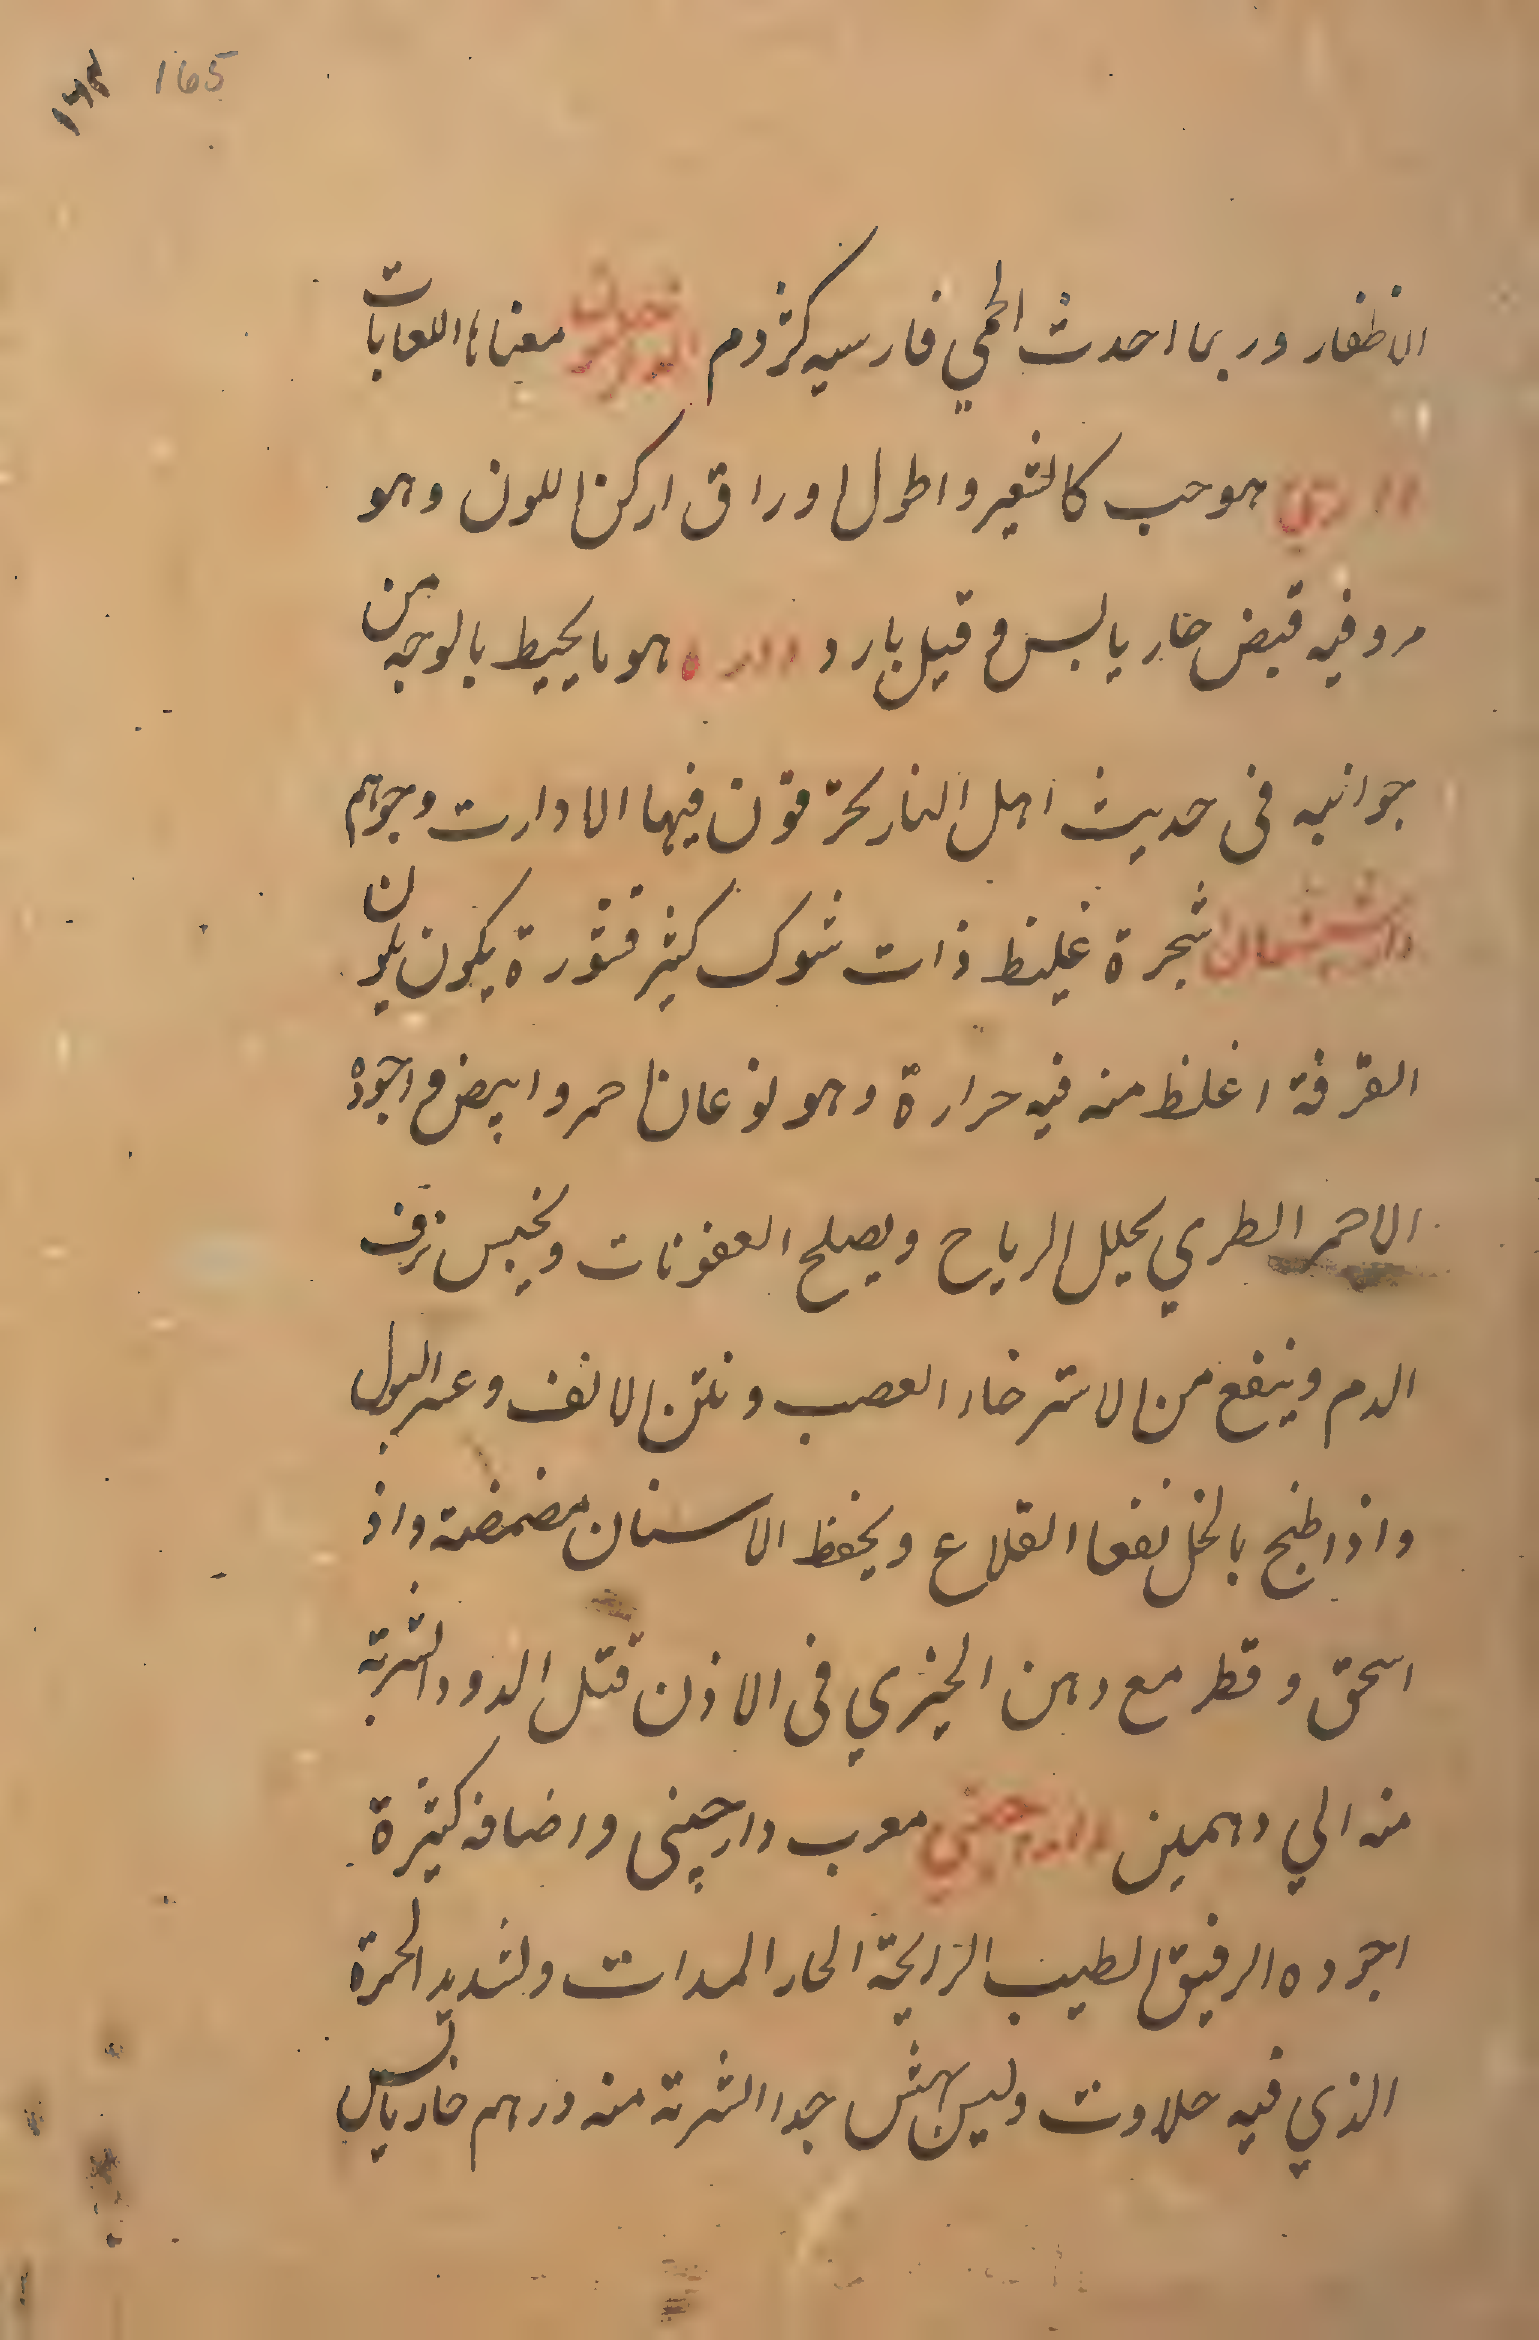 165
۱۶۴
الاظفار وربما احدث الحمي فارسيه كژدم معناها اللعابات
هو حب كالشعير واطول وراق اركن اللون وهو
مر وفيه قبض حار يابس وقيل بارد هو ما يحيط بالوجه من
جوانبه فى حديث اهل النار يحترقون فيها الا دارت وجوههم
دارشيشعان شجرة غليظ ذات شوك كثير قشورة يكون بلون
القرفة اغلظ منه فيه حرارة وهو نوعان احمر وابيض واجوده
الاحمر الطري يحلل الرياح ويصلح العفونات ويحبس نزف
الدم وينفع من الاسترخاء العصب ونتن الانف وعسر البول
واذا طبخ بالخل نفعا القلاع ويحفظ الاسنان مضمضة واذ
اسحق وقطر مع دهن الخيري فى الاذن قتل الدود والشربة
منه الي دهمين الدارجيني معرب دارچينى واضافه كثيرة
اجوده الرفيق الطيب الرايحة الحار المدات ولشديد الحمرة
الذي فيه حلاوت وليس بهش جدا الشربة منه درهم حار يابس